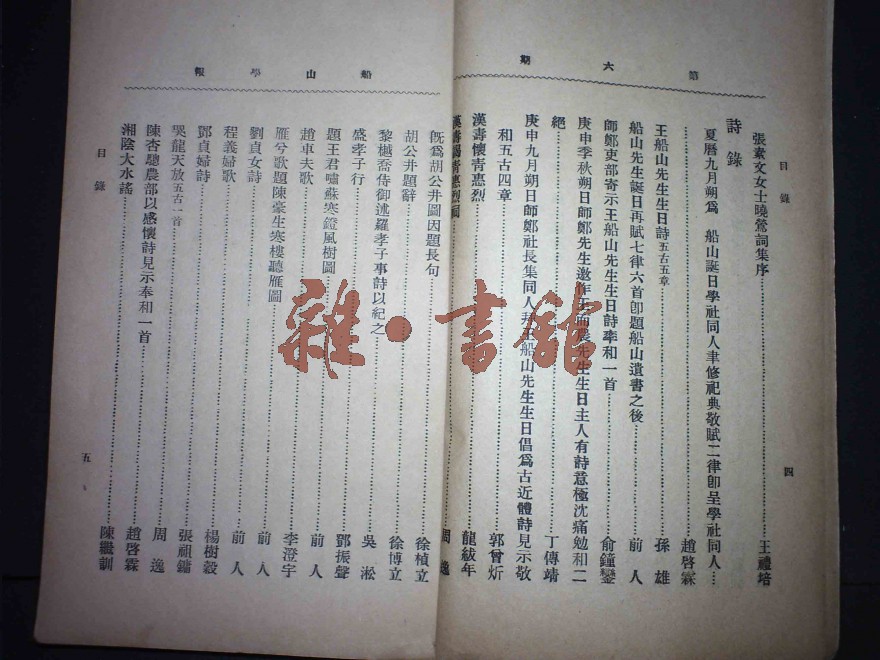 第六期
目錄
張素文女士曉鶯詞集序……王禮培
詩錄
夏曆九月朔爲 船山誕日學社同人聿修祀典敬賦二律卽呈學社同人……
……趙啓霖
王船山先生生日詩五古五章……孫雄
船山先生誕日再賦七律六首卽題船山遺書之後……前人
師鄭吏部寄示王船山先生生日詩奉和一首……俞鐘鑾
庚申季秋朔日師鄭先生邀作王而農先生生日主人有詩意極沈痛勉和二
絕……丁傳靖
庚申九月朔日師鄭社長集同人拜王船山先生生日倡爲古近體詩見示敬
和五古四章……郭曾炘
漢壽懷青惠烈……龍紱年
漢壽謁青惠烈祠……周逸
四
船山學報
旣爲胡公井圖因題長句……徐楨立
胡公井題辭……徐博立
黎樾喬侍御述羅孝子事詩以紀之……吳淞
盛孝子行……鄧振聲
題王君嘯蘇寒鐙風樹圖……前人
趙車夫歌……李澄宇
雁兮歌題陳豪生寒樓聽雁圖……前人
劉貞女詩……前人
程義婦歌……楊樹穀
鄧貞婦詩……張祖鏞
吳龍天放五古一首……周逸
陳杏驄農部以感懷詩見示奉和一首……趙啓霖
湘陰大水謠……陳繼訓
目錄
五
雜·書館